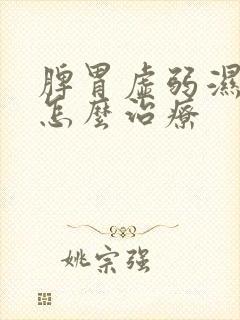 脾胃虛弱濕
怎麼治療
姚宗强